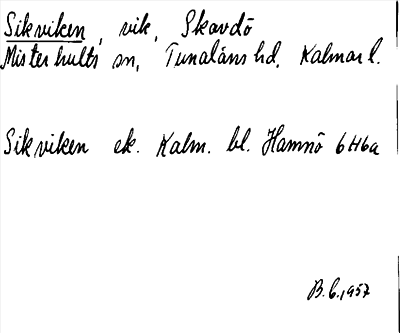 Sikviken, vik, Skavdö
Misterhults sn, Tunaläns hd, Kalmar l.
Sikviken ek. Kalm. bl. Hamnö 6H6a
B.C. 1957